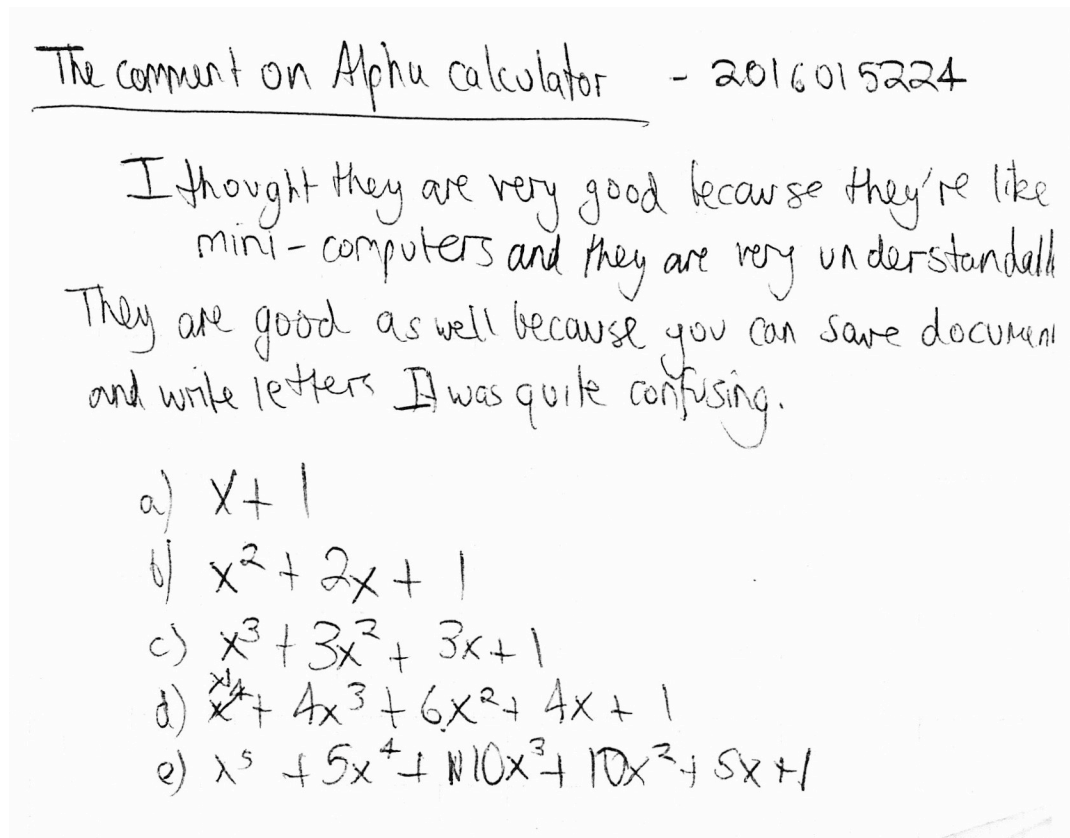 The comment on Alpha calculator - 2016015224
I thought they are very good because they're like
mini-computers and they are very understandabl
They are good as well because you can save document
and write letters It was quite confusing.
a) x+1
b) x² + 2x + 1
c) x³ + 3x² + 3x + 1
d) x⁴ + 4x³ + 6x² + 4x + 1
e) x⁵ + 5x⁴ + 10x³ + 10x² + 5x + 1